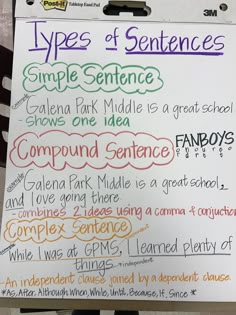 Post-it Tabletop Easel Pad 3M
Types of Sentences
Simple Sentence
Example Galena Park Middle is a great school
- shows one idea
Compound Sentence FANBOYS
for and nor but or yet so
Example Galena Park Middle is a great school,
and I love going there
- combines 2 ideas using a comma + conjuction
Complex Sentence
Example While I was at GPMS, I learned plenty of
things. independent
An independent clause joined by a dependent clause.
*As, After, Although When, While, Until, Because, If, Since *